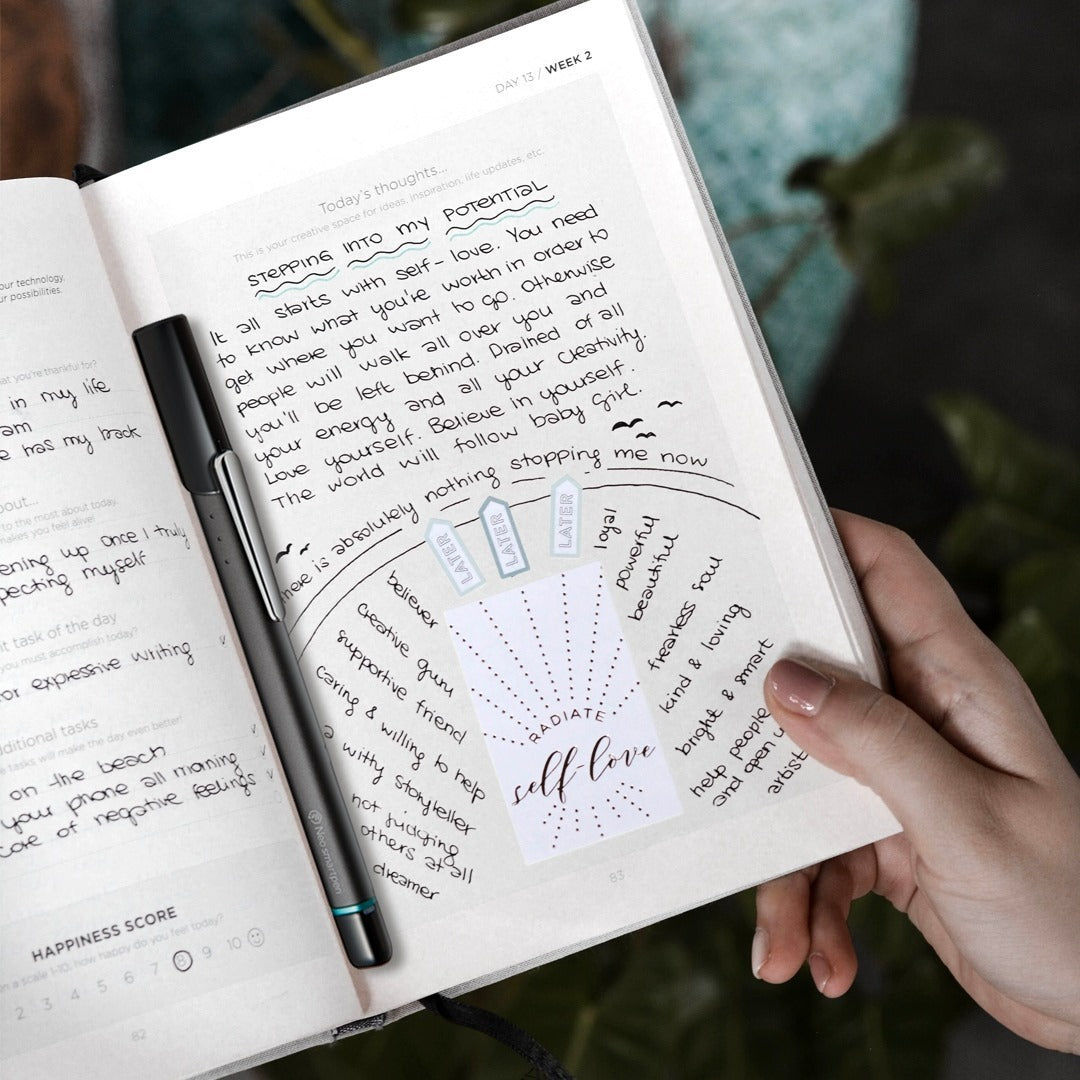 our technology,
ur possibilities.
at you're thankful for?
in my life
am
e has my back
bout...
to the most about today.
makes you feel alive!
ening up once I truly
pecting myself
it task of the day
you must accomplish today?
or expressive writing
dditional tasks
e tasks will make the day even better!
on the beach
your phone all morning
care of negative feelings
HAPPINESS SCORE
on a scale 1-10, how happy do you feel today?
2 3 4 5 6 7 8 9 10
82
DAY 13 / WEEK 2
Today's thoughts...
This is your creative space for ideas, inspiration, life updates, etc.
STEPPING INTO MY POTENTIAL
It all starts with self-love. You need
to know what you're worth in order to
get where you want to go. Otherwise
people will walk all over you and
you'll be left behind. Drained of all
your energy and all your creativity.
Love yourself. Believe in yourself.
The world will follow baby girl.
here is absolutely nothing stopping me now
LATER
LATER
LATER
believer
creative guru
supportive friend
caring & willing to help
a witty storyteller
not judging
others at all
dreamer
RADIATE
self-love
loyal
powerful
beautiful
fearless soul
kind & loving
bright & smart
help people
and open u
artist
83
Neo smartpen